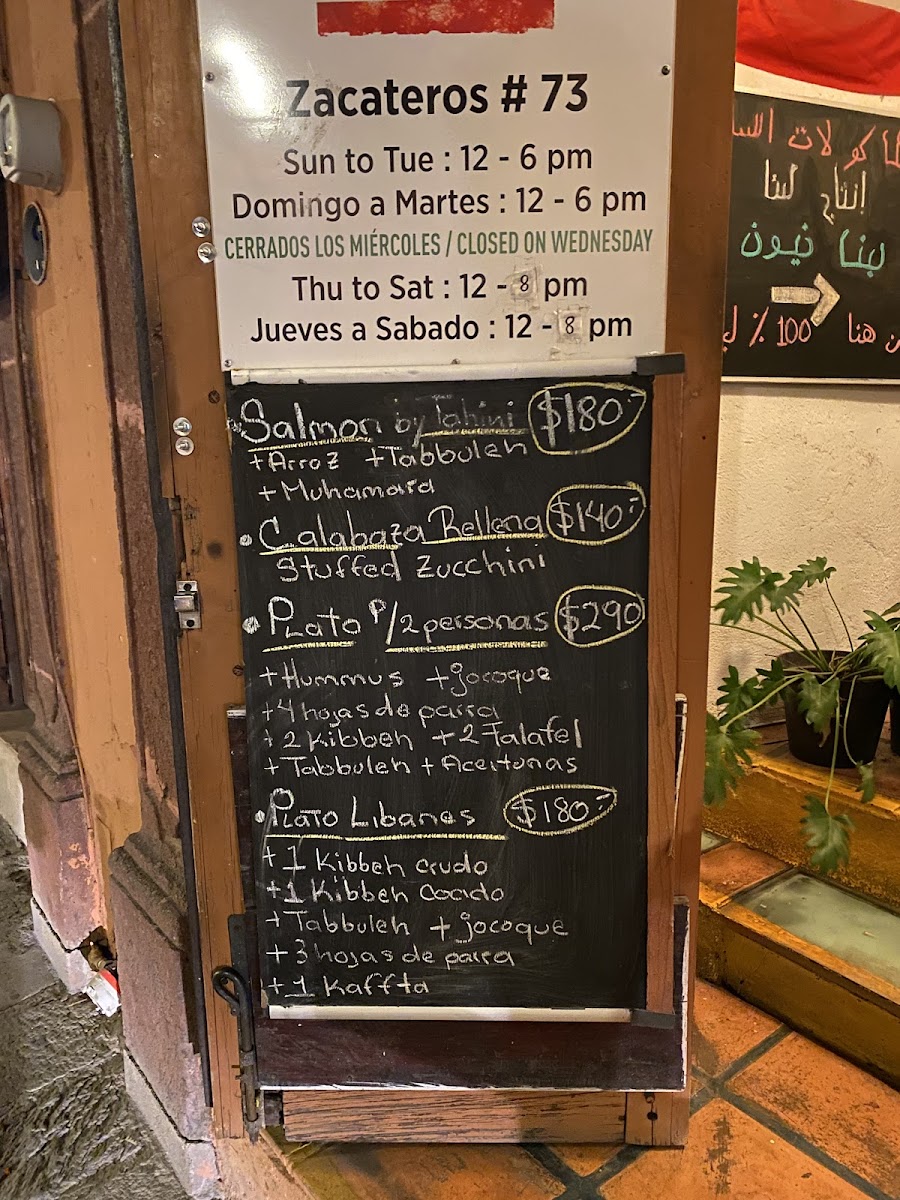 Zacateros # 73
Sun to Tue : 12 - 6 pm
Domingo a Martes : 12 - 6 pm
CERRADOS LOS MIÉRCOLES / CLOSED ON WEDNESDAY
Thu to Sat : 12 - 8 pm
Jueves a Sabado : 12 - 8 pm
Salmon by Tahini $180.-
+Arroz +Tabbouleh
+Muhamara
• Calabaza Rellena $140.-
Stuffed Zucchini
• Plato P/2 personas $290
+Hummus +jocoque
+4 hojas de parra
+2 Kibbeh +2 Falafel
+Tabbuleh +Aceitunas
• Plato Libanes $180.-
+1 Kibbeh crudo
+1 Kibbeh cocido
+Tabbuleh +jocoque
+3 hojas de parra
+1 Kaffta
إنتاج لبنا
لبنا نيون
هنا 100 ٪